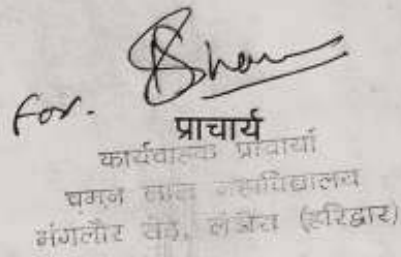 For.
प्राचार्य
कार्यवाहक प्राचार्या
चमन लाल महाविद्यालय
मंगलौर रोड, (हरिद्वार)